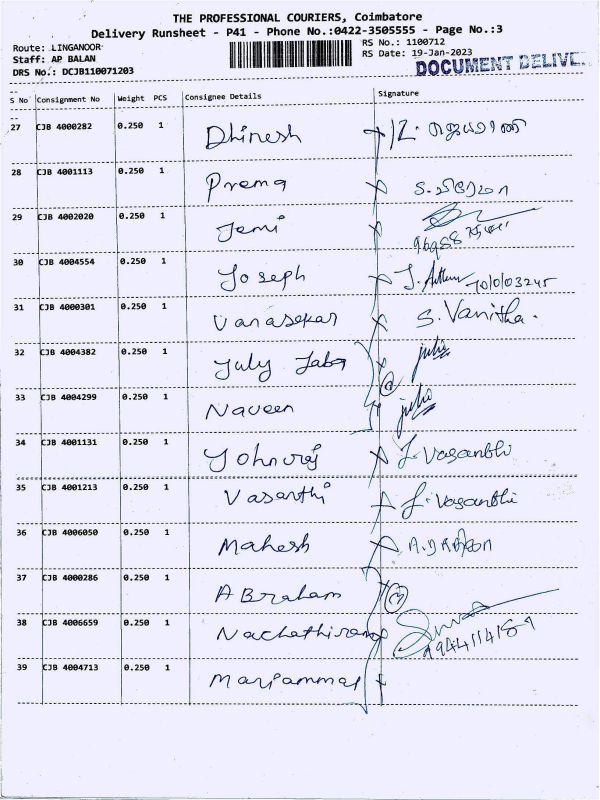 THE PROFESSIONAL COURIERS, Coimbatore
Delivery Runsheet - P41 - Phone No.:0422-3505555 - Page No.:3
Route: LINGANOOR RS No.: 1100712
Staff: AP BALAN RS Date: 19-Jan-2023
DRS No.: DCJB110071203 DOCUMENT DELIVE
S No Consignment No Weight PCS Consignee Details Signature
27 CJB 4000282 0.250 1 Dhinesh
28 CJB 4001113 0.250 1 Prema
29 CJB 4002020 0.250 1 Jemi
30 CJB 4004554 0.250 1 Joseph
31 CJB 4000301 0.250 1 Vanasekar S. Vanitha.
32 CJB 4004382 0.250 1 July Jaba julie
33 CJB 4004299 0.250 1 Naveen julie
34 CJB 4001131 0.250 1 Johnraj J. Vasanthi
35 CJB 4001213 0.250 1 Vasanthi J. Vasanthi
36 CJB 4006050 0.250 1 Mahesh
37 CJB 4000286 0.250 1 ABraham
38 CJB 4006659 0.250 1 Nachathiram
39 CJB 4004713 0.250 1 Mariammal